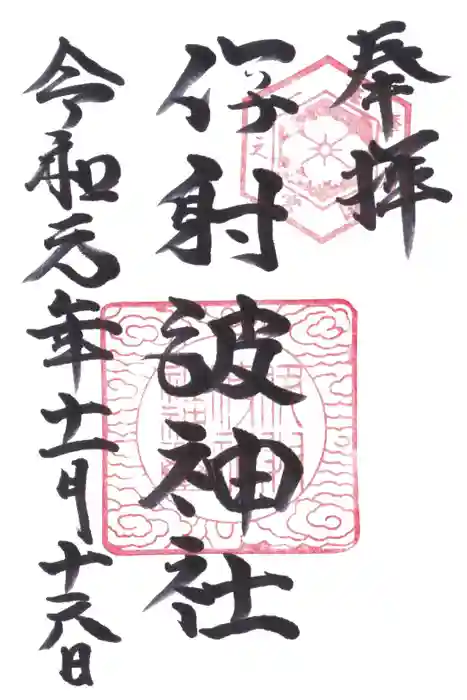 奉拝
伊射波神社
令和元年十一月十六日